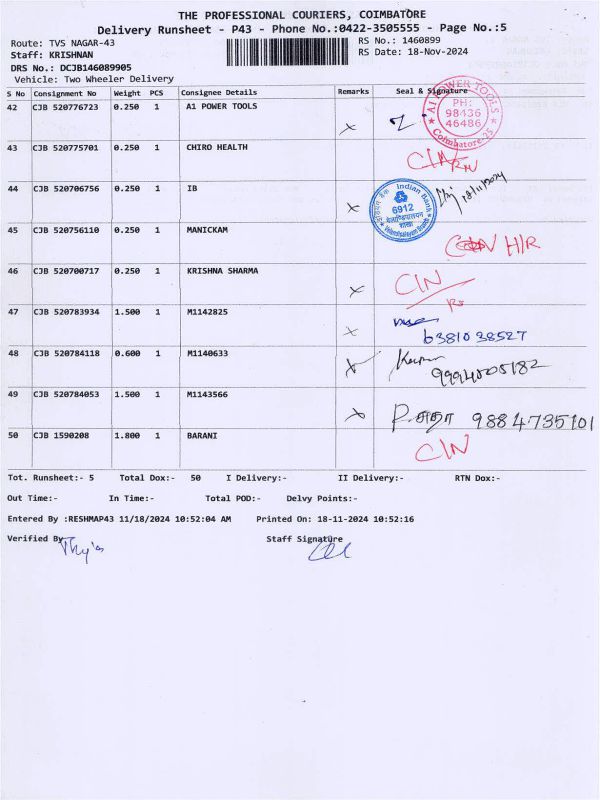 THE PROFESSIONAL COURIERS, COIMBATORE
Delivery Runsheet - P43 - Phone No.:0422-3505555 - Page No.:5
Route: TVS NAGAR-43
RS No.: 1460899
Staff: KRISHNAN
RS Date: 18-Nov-2024
DRS No.: DCJB146089905
Vehicle: Two Wheeler Delivery
S No Consignment No Weight PCS Consignee Details Remarks Seal & Signature
42 CJB 520776723 0.250 1 A1 POWER TOOLS
A1 POWER TOOLS
PH:
98436
46486
Coimbatore-25
43 CJB 520775701 0.250 1 CHIRO HEALTH
44 CJB 520706756 0.250 1 IB 18/11/2024
Indian Bank
6912
शाखा
45 CJB 520756110 0.250 1 MANICKAM H/R
46 CJB 520700717 0.250 1 KRISHNA SHARMA CIN
47 CJB 520783934 1.500 1 M1142825
6381038527
48 CJB 520784118 0.600 1 M1140633
9994005182
49 CJB 520784053 1.500 1 M1143566
P.சுதா 9884735101
50 CJB 1590208 1.800 1 BARANI CIN
Tot. Runsheet:- 5 Total Dox:- 50 I Delivery:- II Delivery:- RTN Dox:-
Out Time:- In Time:- Total POD:- Delvy Points:-
Entered By :RESHMAP43 11/18/2024 10:52:04 AM Printed On: 18-11-2024 10:52:16
Verified By
Staff Signature